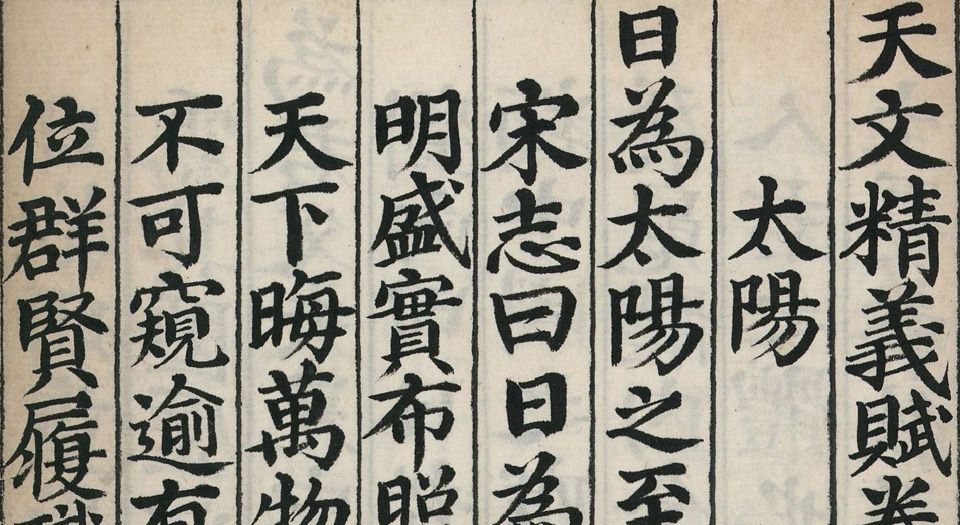 天文精義賦卷
太陽
日為太陽之至
宋志曰日為
明盛實布昭
天下晦萬物
不可窺逾有
位群賢履職